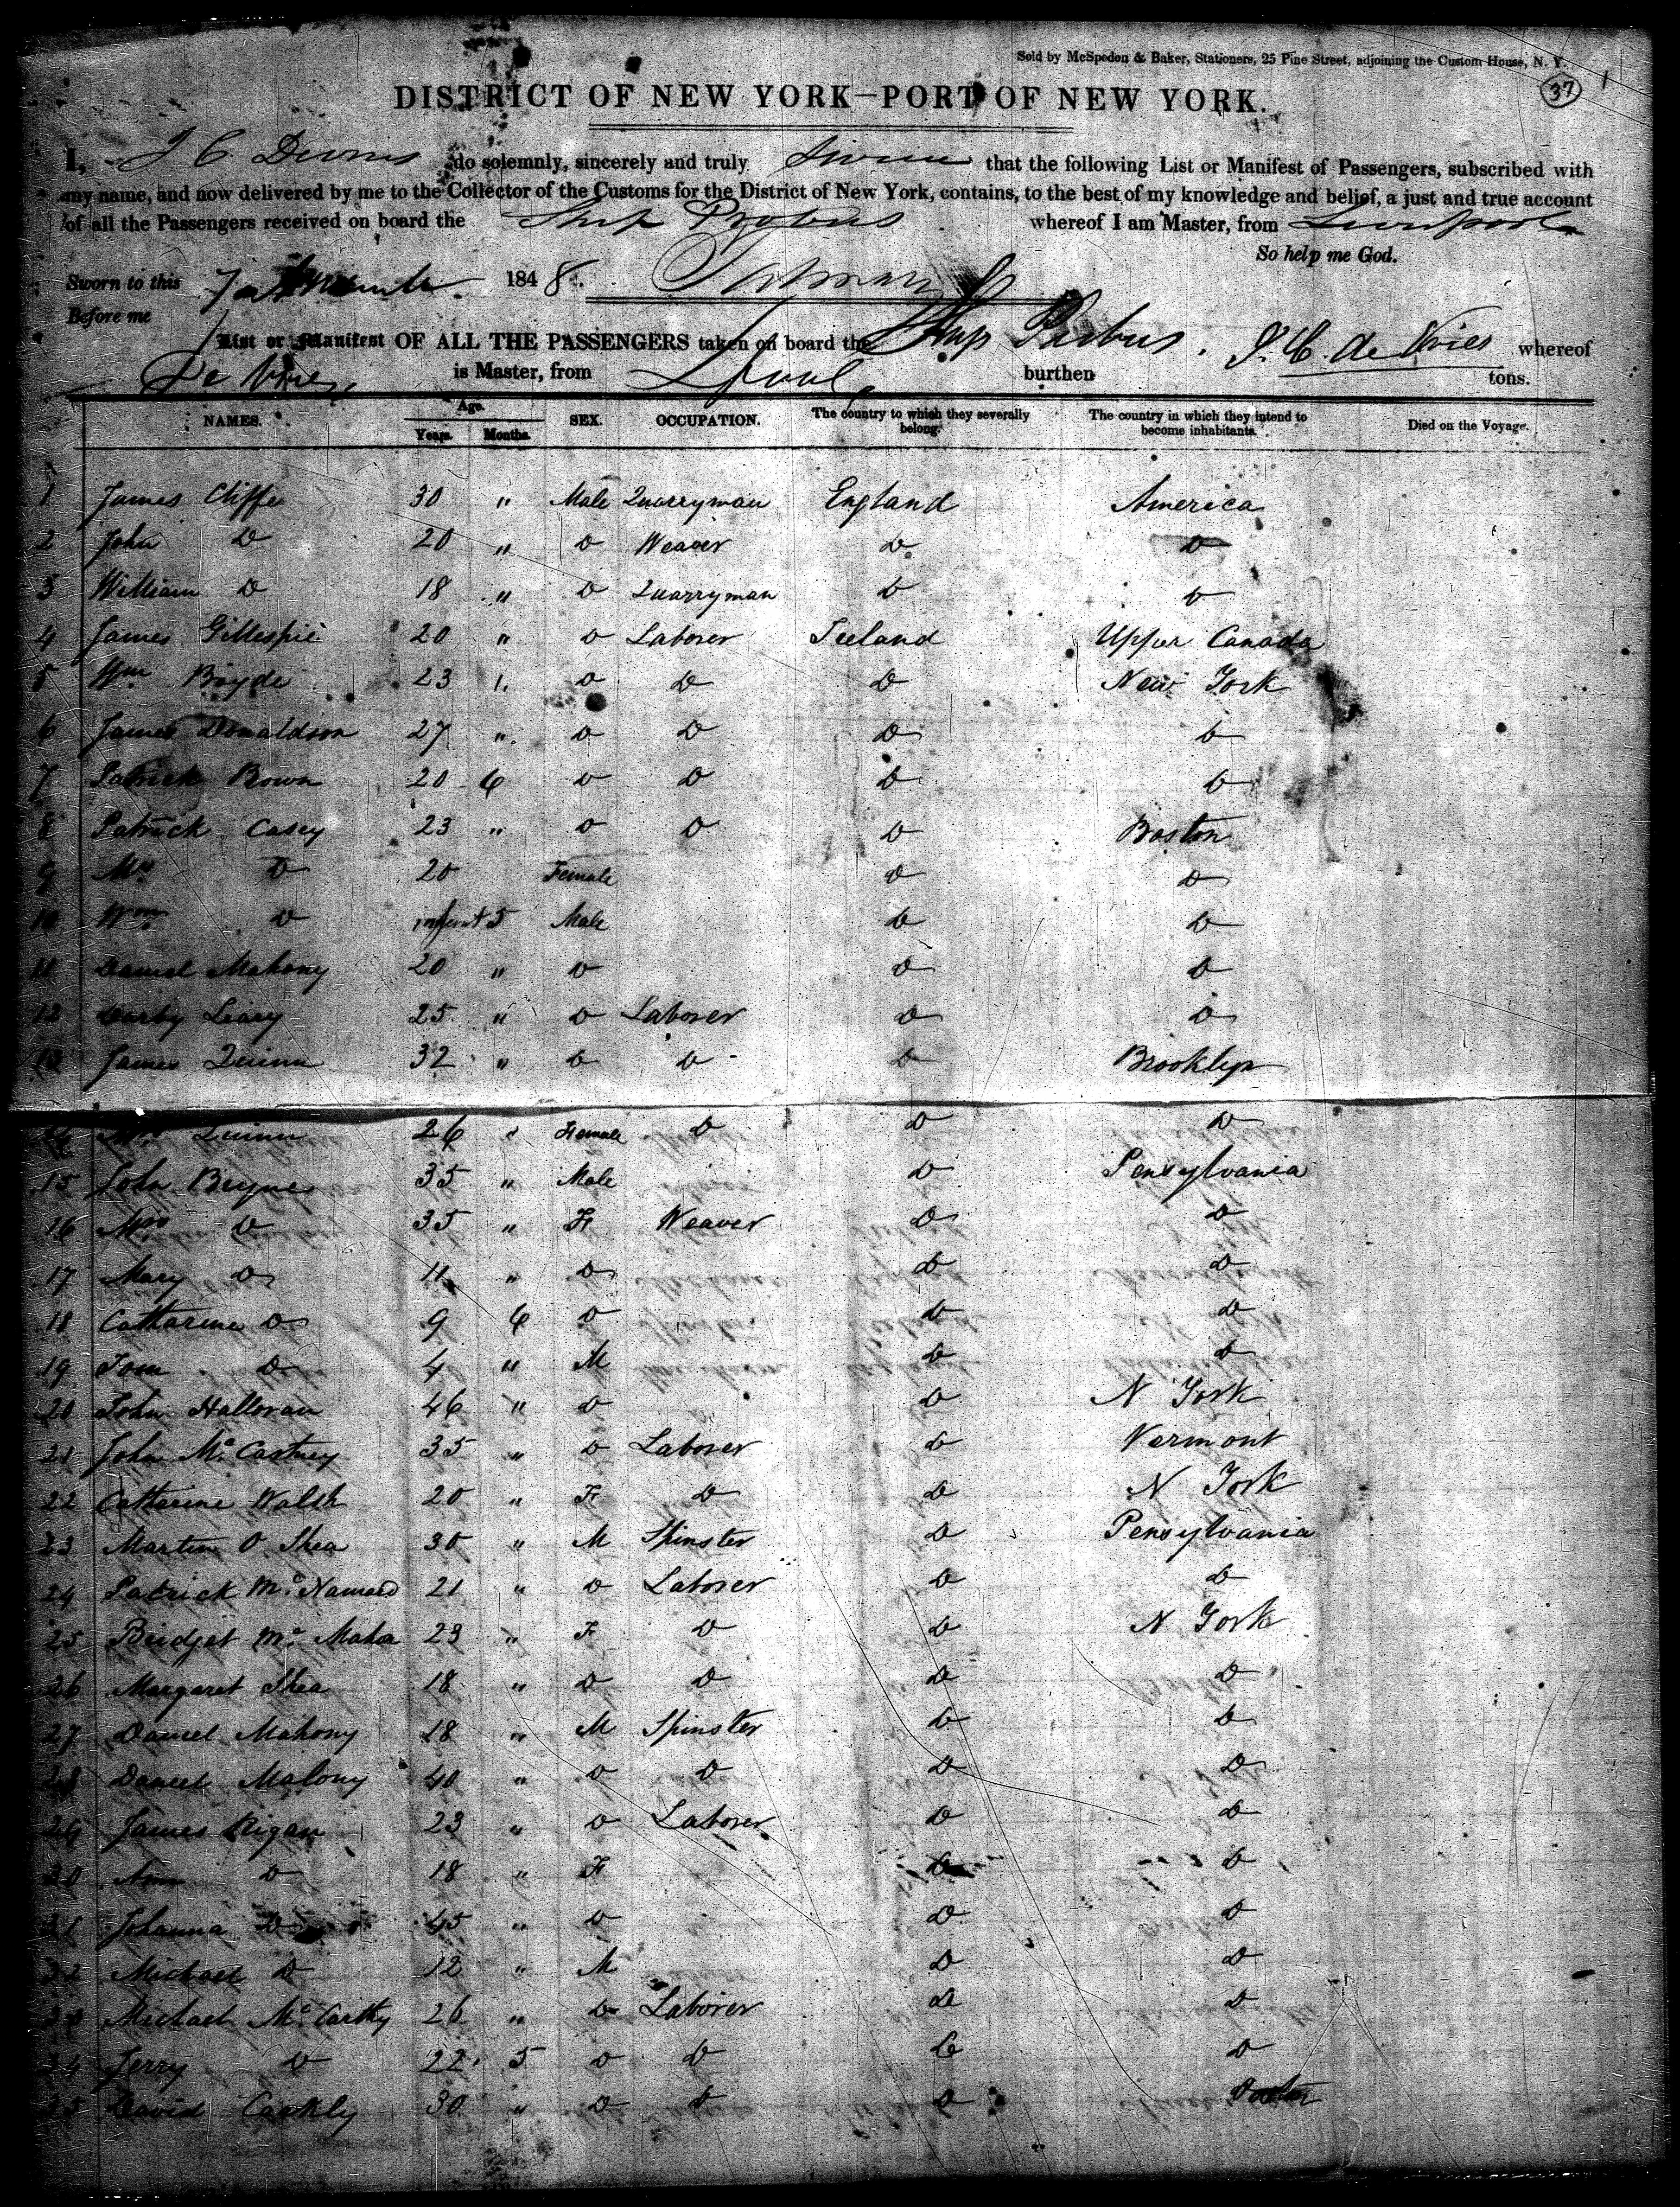 Sold by McSpedon & Baker, Stationers, 25 Pine Street, adjoining the Custom House, N. Y.
37 1
DISTRICT OF NEW YORK—PORT OF NEW YORK.
I, J C do solemnly, sincerely and truly that the following List or Manifest of Passengers, subscribed with
my name, and now delivered by me to the Collector of the Customs for the District of New York, contains, to the best of my knowledge and belief, a just and true account
of all the Passengers received on board the Ship Probus whereof I am Master, from Liverpool
So help me God.
Sworn to this 184 8.
Before me
List or Manifest OF ALL THE PASSENGERS taken on board the Ship Probus. J. C. de Vries whereof
De Vries is Master, from Lpool burthen tons.
NAMES. Age. Years. Months. SEX. OCCUPATION. The country to which they severally belong. The country in which they intend to become inhabitants. Died on the Voyage.
1 James Cliffe 30 " Male Quarryman England America
2 John D 20 " D Weaver D D
3 William D 18 " D Quarryman D D
4 James Gillespie 20 " D Laborer Ireland Upper Canada
5 Wm Boyde 23 " D D D New York
6 James Donaldson 27 " D D D D
7 Patrick Bown 20 6 D D D D
8 Patrick Casey 23 " D D D Boston
9 Mrs D 20 Female D D
10 Wm D infant 5 Male D D
11 Daniel Mahony 20 " D D D
12 Darby Leary 25 " D Laborer D D
13 James Quinn 32 " D D D Brooklyn
14 Mrs Quinn 26 " Female D D D
15 John Beyrnes 35 " Male D Pensylvania
16 Mrs D 35 " F Weaver D D
17 Mary D 11 " D D D
18 Catharine D 9 6 D D D
19 Tom D 4 " M D D
20 John Halloran 46 " D D N York
21 John McCastney 35 " D Laborer D Vermont
22 Catharine Walsh 20 " F D D N York
23 Martin O Shea 30 " M Spinster D Pensylvania
24 Patrick McNamara 21 " D Laborer D D
25 Bridget Mc Mahon 23 " F D D N York
26 Margaret Shea 18 " D D D D
27 Daniel Mahony 18 " M Spinster D D
28 Daniel Malony 40 " D D D D
29 James Rigan 23 " D Laborer D D
30 Ann D 18 " F D D
31 Johanna D 45 " D D D
32 Michael D 12 " M D D
33 Michael McCarthy 26 " D Laborer D D
34 Jerry D 22 5 D D D D
35 David Cackly 30 " D D D Boston